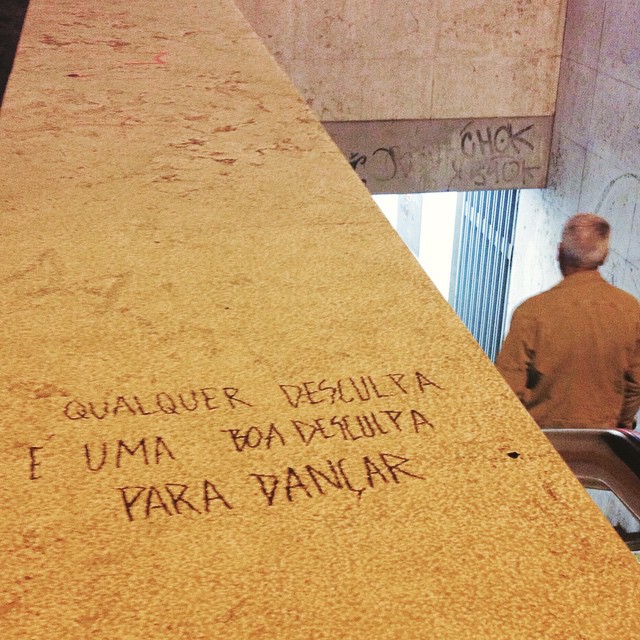 CHOK
QUALQUER DESCULPA
É UMA BOA DESCULPA
PARA DANÇAR